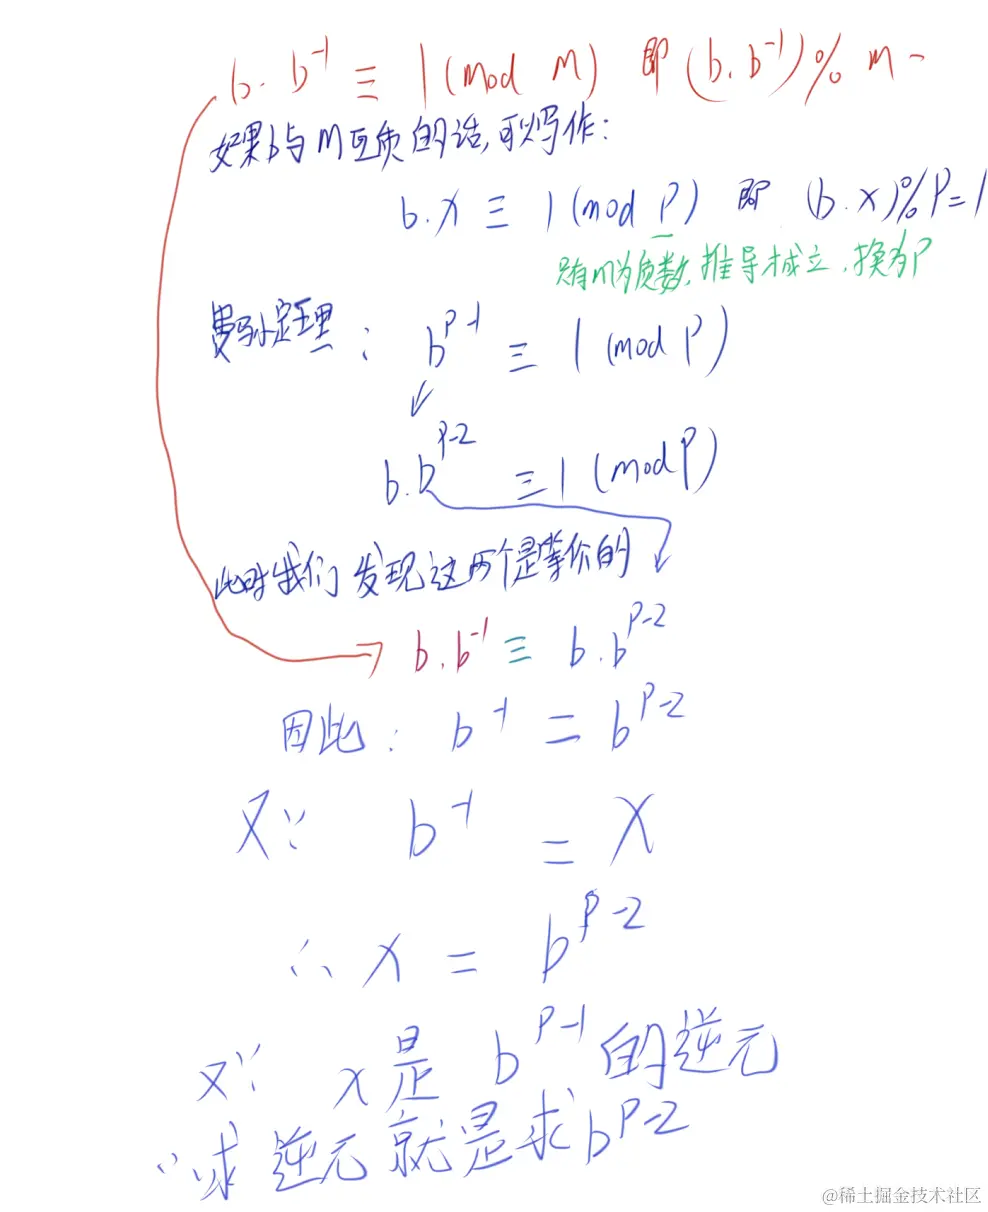 b · b⁻¹ ≡ 1 (mod m) 即 (b · b⁻¹) % m
如果b与m互质的话,可以写作:
b · x ≡ 1 (mod P) 即 (b · x) % P = 1
只有m为质数,推导才成立,换为P
费马小定理: b^{P-1} ≡ 1 (mod P)
b · b^{P-2} ≡ 1 (mod P)
此时我们发现这两个是等价的
b · b⁻¹ ≡ b · b^{P-2}
因此: b⁻¹ = b^{P-2}
又∵ b⁻¹ = x
∴ x = b^{P-2}
又∵ x是 b^{P-1} 的逆元
∴求逆元就是求 b^{P-2}
@稀土掘金技术社区